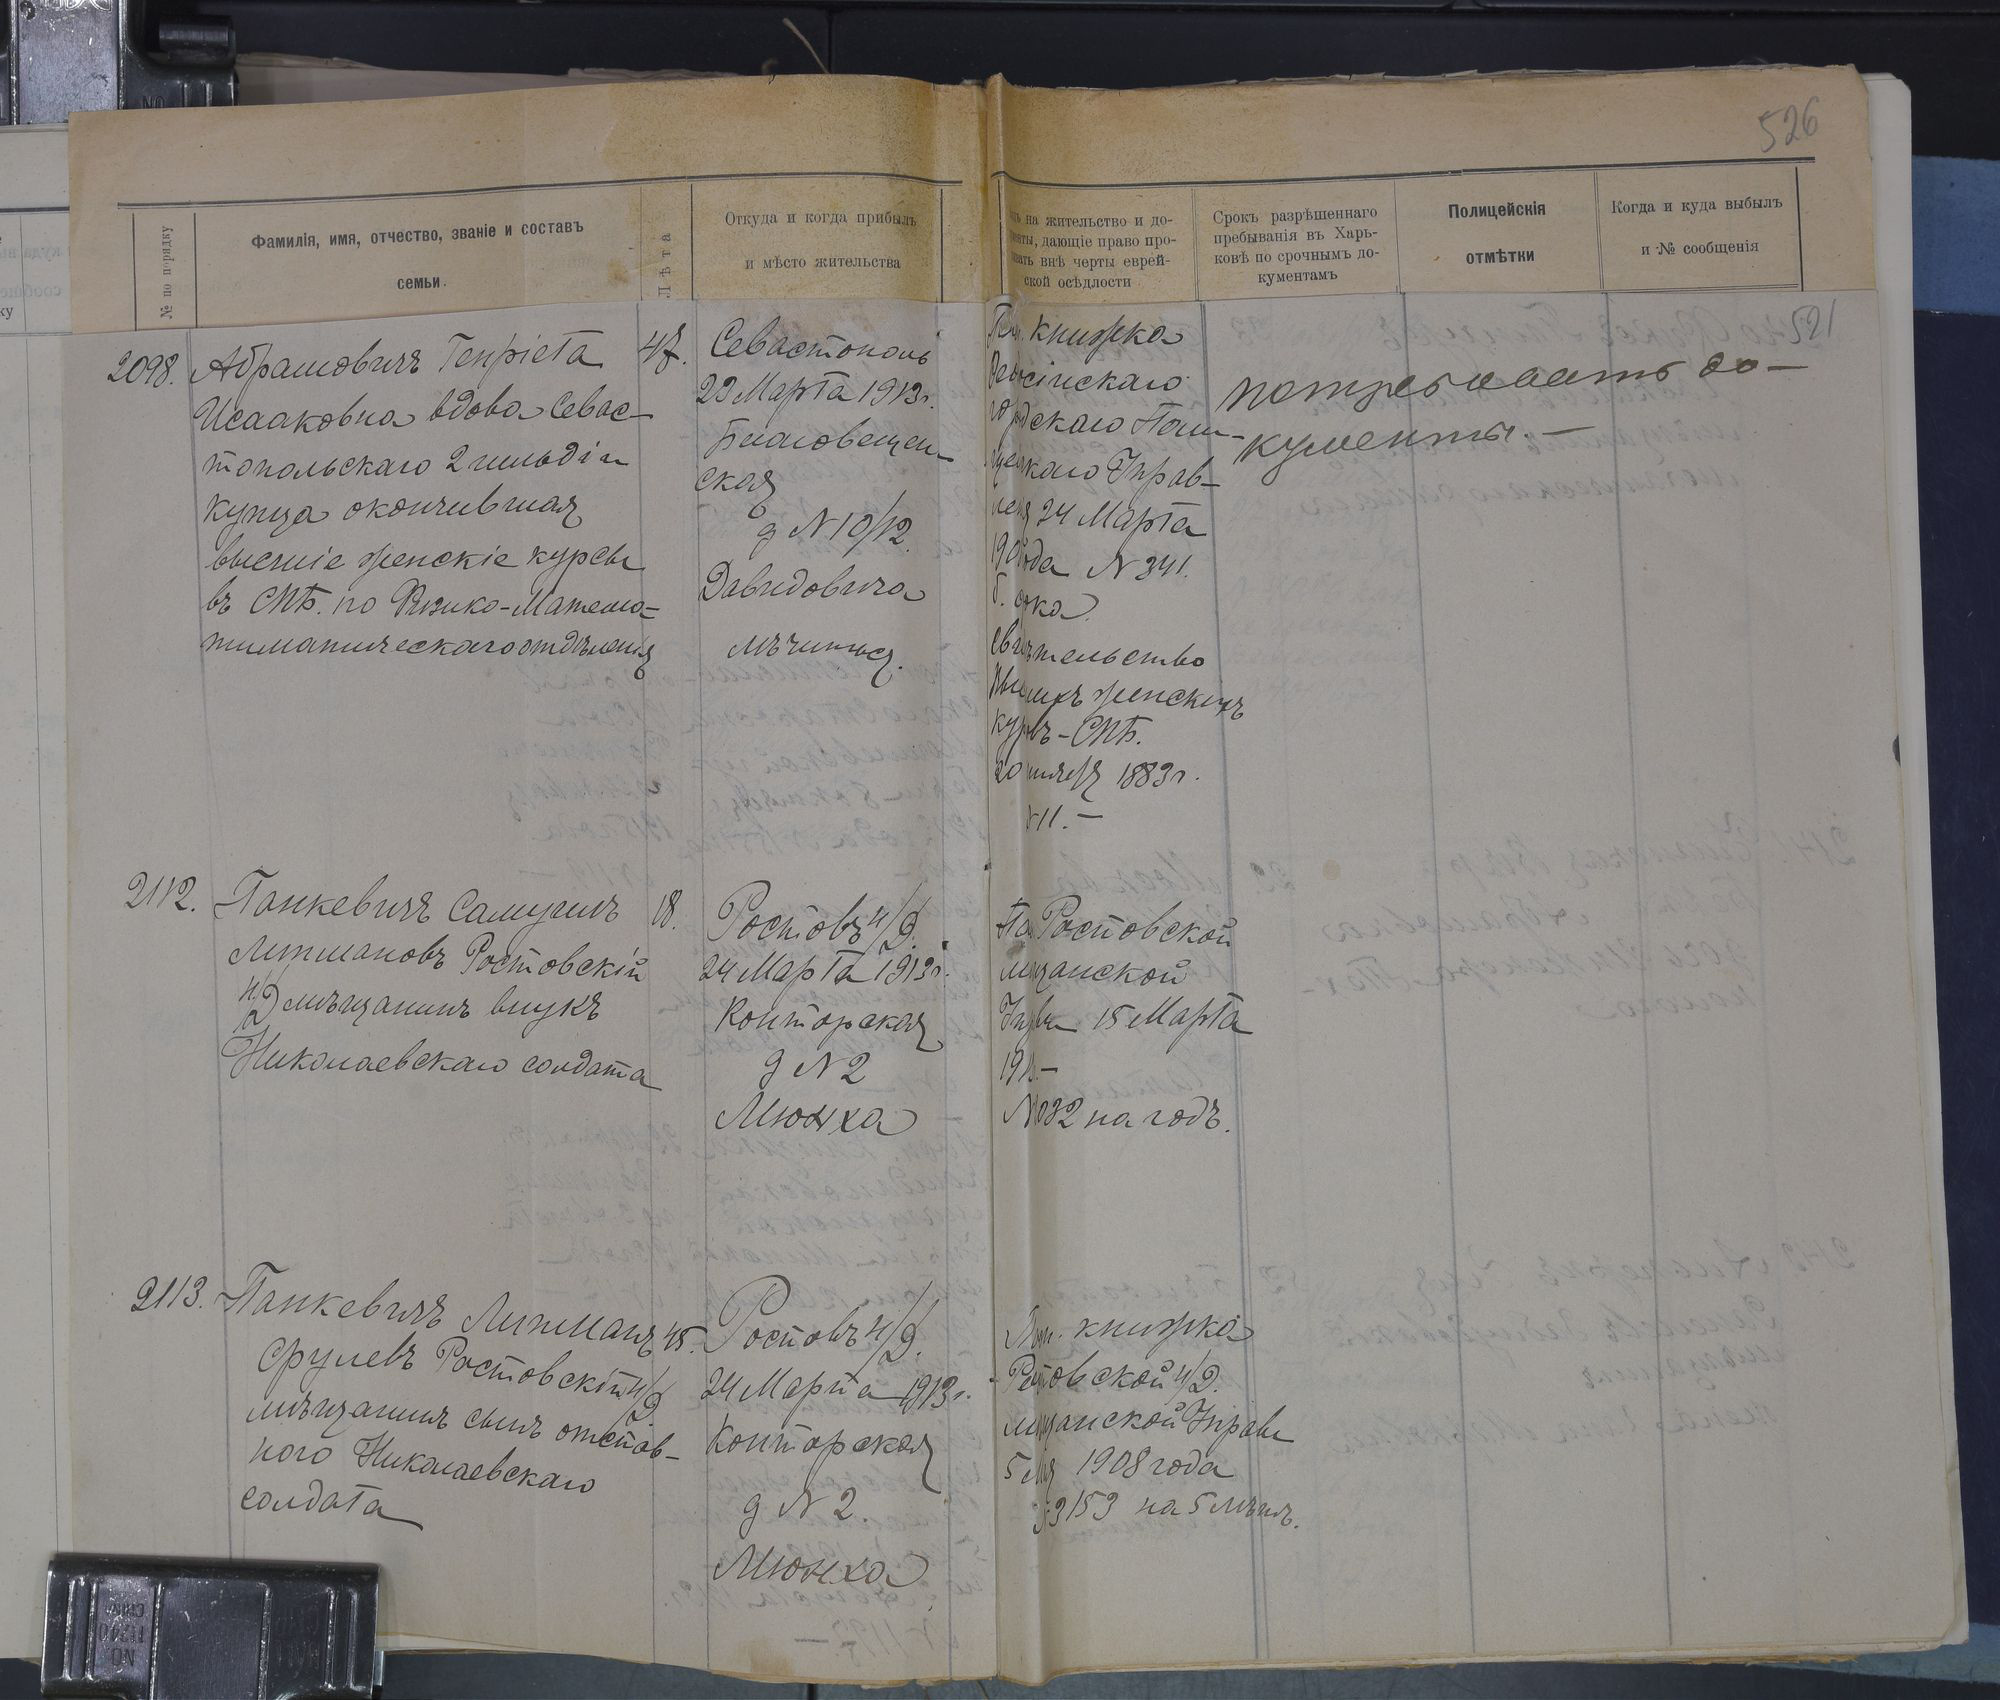 526
№ по порядку
Фамилія, имя, отчество, званіе и составъ
семьи.
Лѣта
Откуда и когда прибылъ
и мѣсто жительства
на жительство и до-
дающіе право про-
внѣ черты еврей-
ской осѣдлости
Срокъ разрѣшеннаго
пребыванія въ Харь-
ковѣ по срочнымъ до-
кументамъ
Полицейскія
отмѣтки
Когда и куда выбылъ
и № сообщенія
521
2098.
Абрамовичъ Генріета
Исааковна вдова Севас-
топольскаго 2 гильдіи
купца окончившая
высшіе женскіе курсы
въ СПБ. по Физико-Матема-
тиматическаго отдѣленія
47.
Севастополь
23 Марта 1913г.
Благовещен-
ская
д N 10/12.
Давидовича
лѣчиться.
книжка
скаго Поли-
Управ-
24 Марта
года N 341.
женскихъ
СПБ.
1883г.
11.—
потребовать до-
кументы.—
2112.
Панкевичъ Самуилъ
Литмановъ Ростовскій
н/Д мѣщанинъ внукъ
Николаевскаго солдата
18.
Ростовъ н/Д.
24 Марта 1913г.
Конторская
д N 2
Мюнха
Ростовской
15 Марта
на годъ.
2113.
Панкевичъ Литманъ
Срулевъ Ростовскій н/Д
мѣщанинъ сынъ отстав-
ного Николаевскаго
солдата
45.
Ростовъ н/Д.
24 Марта 1913г.
Конторская
д N 2.
Мюнха
книжка
н/Д.
Управы
1908 года
на 5 лѣтъ.